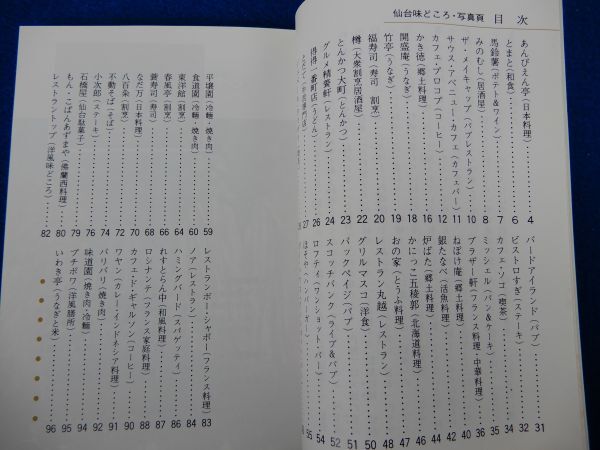 仙台味どころ・写真頁 目次
あんぴえん亭(日本料理)……4
とまと(和食)……6
馬鈴薯(ポテト&ワイン)……7
みのむし(居酒屋)……8
ザ・メイキャップ(パブレストラン)……10
サウス・アベニュー・カフェ(カフェバー)……11
カフェ・プロコプ(コーヒー)……12
かき徳(郷土料理)……16
開盛庵(うなぎ)……18
竹亭(うなぎ)……19
福寿司(寿司 割烹)……20
樽(大衆割烹居酒屋)……22
とんかつ大町(とんかつ)……23
グルメ精養軒(レストラン)……24
得得一番町店(うどん)……26
27
バードアイランド(パブ)……31
ビストロすぎ(ステーキ)……32
カフェ・ソコ(喫茶)……34
ミッシェル(パン&ケーキ)……35
ブラザー軒(フランス料理・中華料理)……36
ねぼけ庵(郷土料理)……40
銀たなべ(活魚料理)……42
炉ばた(郷土料理)……44
かにっこ五稜郭(北海道料理)……46
おの家(とうふ料理)……47
レストラン丸越(レストラン)……48
グリルマスコ(洋食)……50
バックペイジ(パブ)……51
スコッチバンク(ライブ&パブ)……52
ロフティ(ワンショット・バー)……54
55
平壌園(冷麺・焼き肉)……59
食道園(冷麺・焼き肉)……60
東洋館(割烹)……64
春風亭(割烹)……66
蓑寿司(寿司)……68
なだ万(日本料理)……70
八百条(割烹)……72
不動そば(そば)……74
小次郎(ステーキ)……76
石橋屋(仙台駄菓子)……79
もん・こぱんあずまや(佛蘭西料理)……80
レストラントップ(洋風味どころ)……82
レストランボー・シャポー(フランス料理)……83
ノア(レストラン)……84
ハミングバード(スパゲッティ)……86
れすとらん中(和風料理)……87
ロシナンテ(フランス家庭料理)……88
カフェ・ド・ギャルソン(コーヒー)……90
ワヤン(カレー・インドネシア料理)……91
バリバリ(焼き肉)……92
味道園(焼き肉・冷麺)……94
プチポワ(洋風膳所)……95
いわき亭(うなぎと米)……96